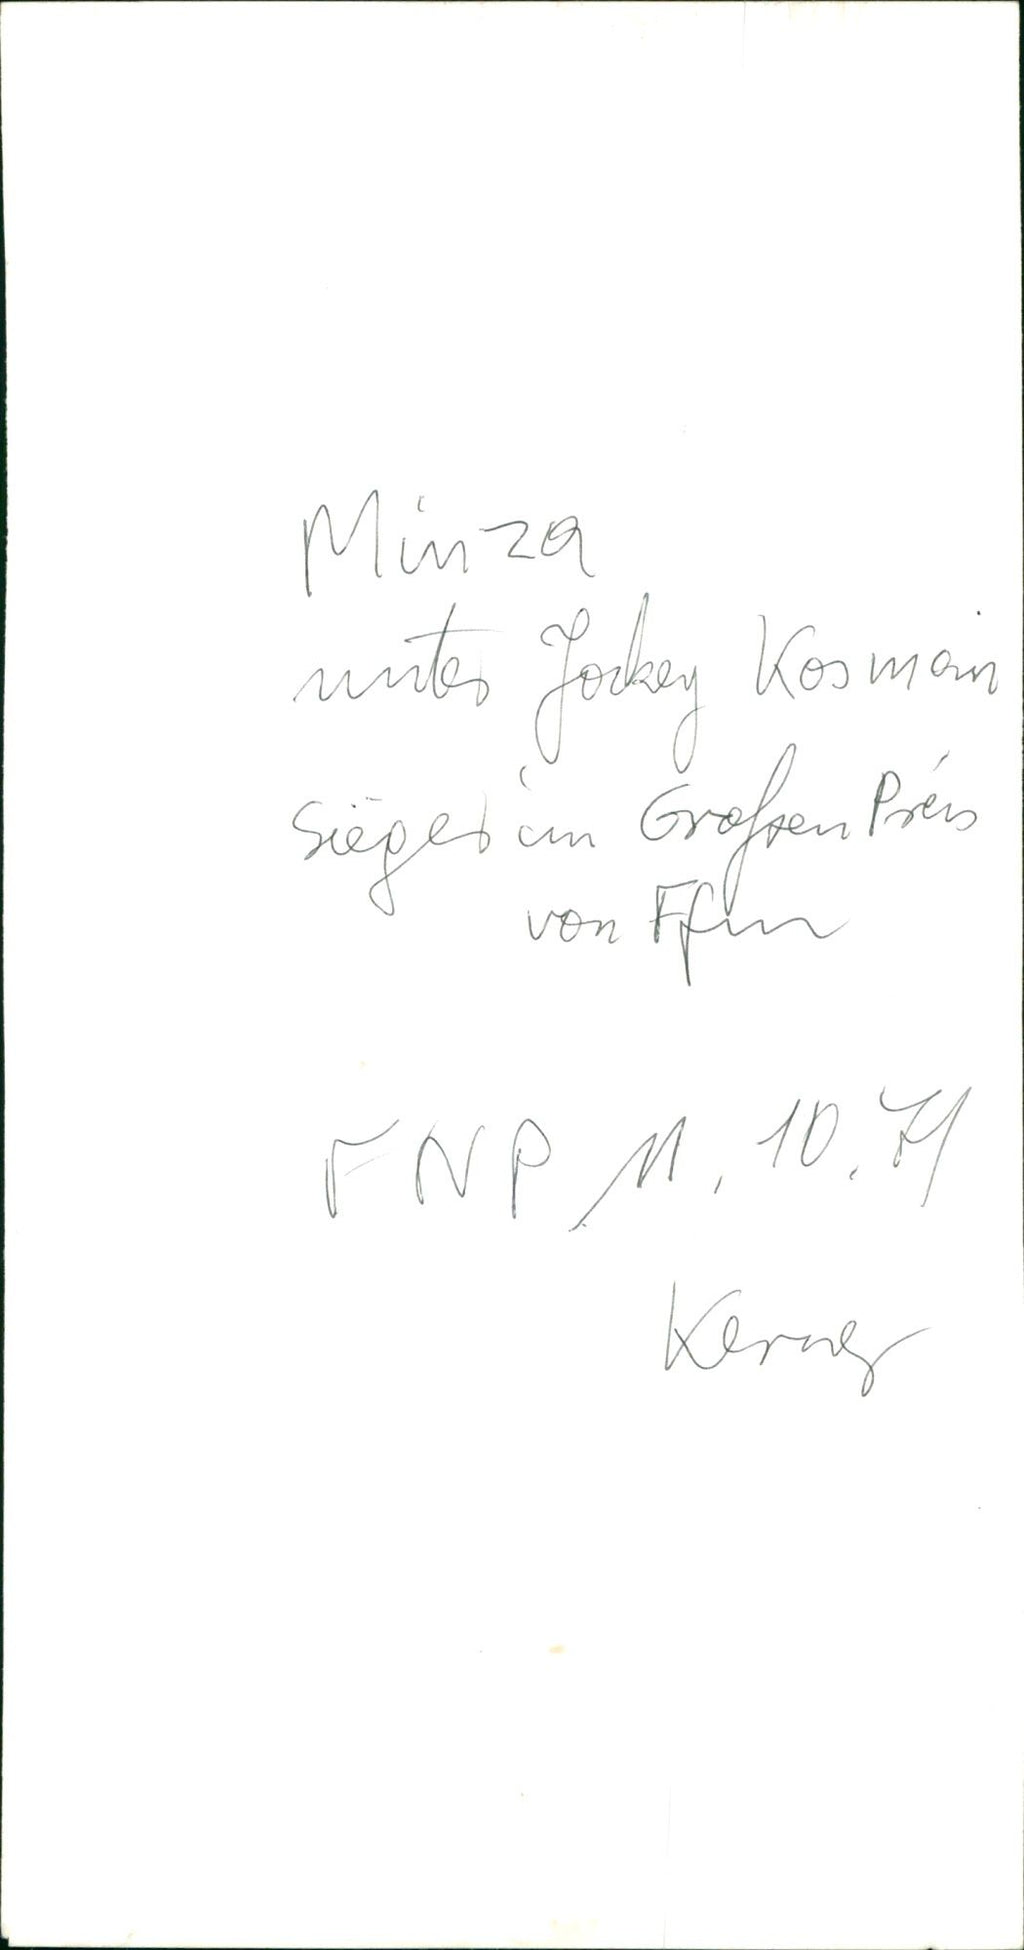 Minza
unter Jockey Kosman
Sieger im Großen Preis
von Ffm
FNP 11.10.71
Kerner